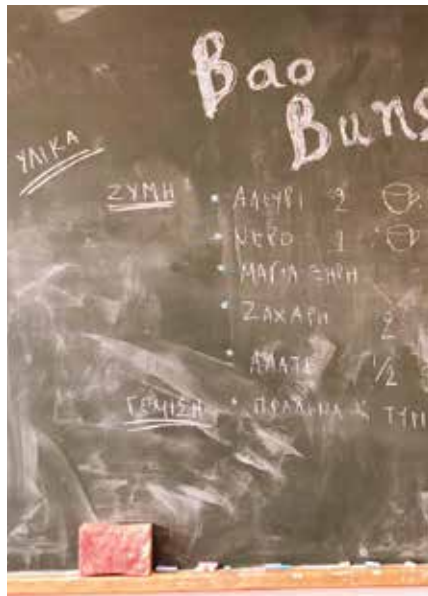 Bao
Buns
ΥΛΙΚΑ
ΖΥΜΗ • ΑΛΕΥΡΙ 2
• ΝΕΡΟ 1
• ΜΑΓΙΑ ΞΗΡΗ
• ΖΑΧΑΡΗ 2
• ΑΛΑΤΙ 1/2
ΓΕΜΙΣΗ • ΠΡΑΛΙΝΑ & ΤΥΡΙ